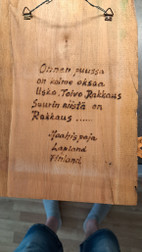 Onnen puussa
on kolme oksaa
Usko, Toivo Rakkaus
Suurin niistä on
Rakkaus ......
Lapland
Finland